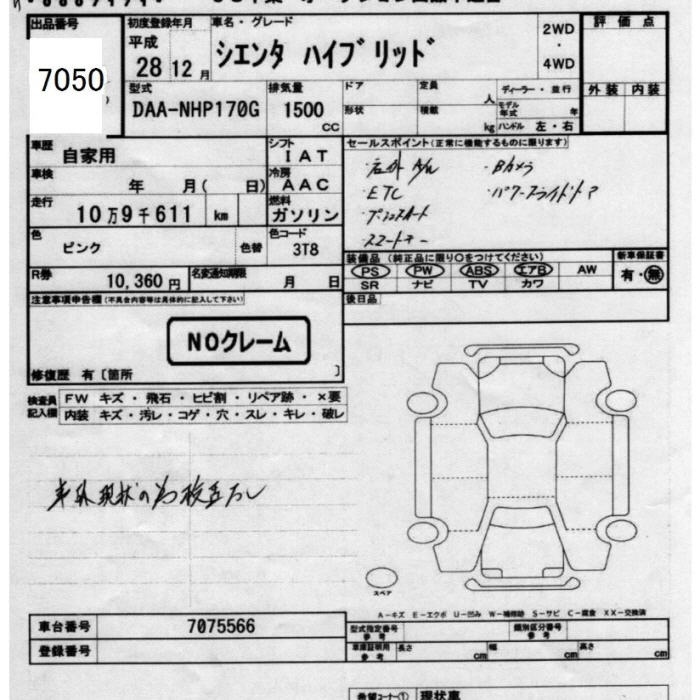 出品番号 初度登録年月 車名・グレード 2WD・4WD 評価点
7050 平成 28 12月 シエンタ ハイブリッド
型式 排気量 ドア 定員 人 ディーラー・並行 外装 内装
DAA-NHP170G 1500 cc 形状 積載 kg モデル年式 年 ハンドル 左・右
車歴 自家用 シフト IAT セールスポイント(正常に機能するものに限ります)
車検 年 月(日) 冷房 AAC
・ETC ・Bカメラ
走行 10万9千611 km 燃料 ガソリン ・パワースライドドア
・プッシュスタート
色 ピンク 色替 色コード 3T8 スマートキー
R券 10,360円 名変通知期限 月 日
装備品(純正品に限り○をつけてください) 新車保証書
PS PW ABS エアB AW 有・無
SR ナビ TV カワ
注意事項申告欄(不具合内容等は具体的に記入して下さい) 後日品
NOクレーム
修復歴 有〔箇所 〕
検査員記入欄 FW キズ・飛石・ヒビ割・リペア跡・×要
内装 キズ・汚レ・コゲ・穴・スレ・キレ・破レ
スペア
A-キズ E-エクボ U-凹み W-補修跡 S-サビ C-腐食 XX-交換済
車台番号 7075566 型式指定番号 参考 類別区分番号 参考
登録番号 車庫証明用 参考 長さ cm 幅 cm 高さ cm
希望コーナー① 現状車